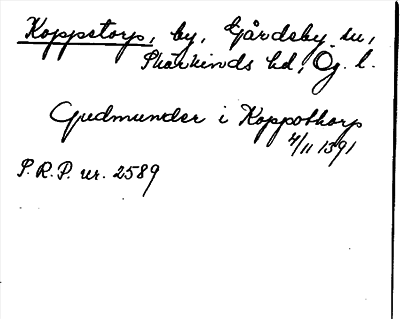 Koppstorp, by, Gårdeby sn,
Skärkinds hd, Ög. l.
Gudmunder i Koppothorp
4/11 1391
S.R.P. nr. 2589